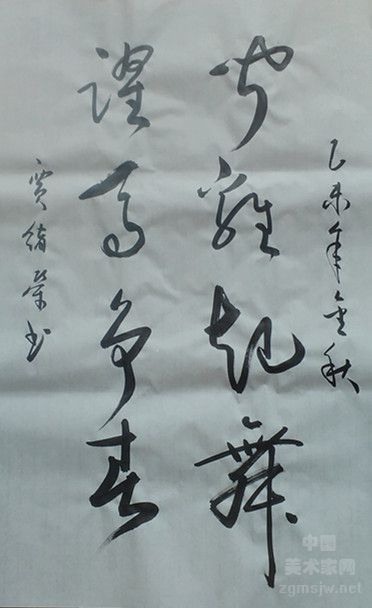 乙未年金秋
闻雞起舞
躍马争春
贾绪荣书
中国
美术家网
zgmsjw.net